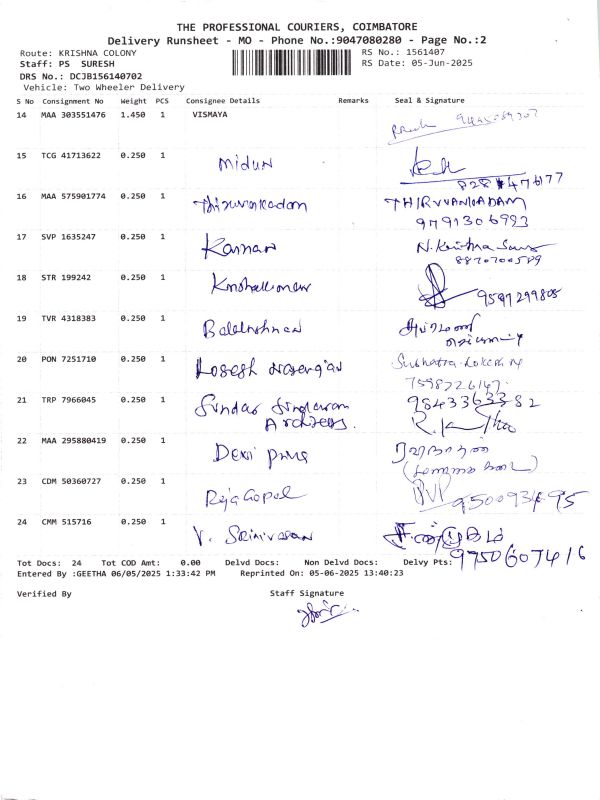 THE PROFESSIONAL COURIERS, COIMBATORE
Delivery Runsheet - MO - Phone No.:9047080280 - Page No.:2
Route: KRISHNA COLONY RS No.: 1561407
Staff: PS SURESH RS Date: 05-Jun-2025
DRS No.: DCJB156140702
Vehicle: Two Wheeler Delivery
S No Consignment No Weight PCS Consignee Details Remarks Seal & Signature
14 MAA 303551476 1.450 1 VISMAYA
15 TCG 41713622 0.250 1 Midun
16 MAA 575901774 0.250 1 Thirunakadam THIRUVANKADAM
9791306993
17 SVP 1635247 0.250 1 Kannan
8870700589
18 STR 199242 0.250 1 9597299805
19 TVR 4318383 0.250 1 Balakrishnan
20 PON 7251710 0.250 1
7598726147
21 TRP 7966045 0.250 1 Sundar Singaram 9843363382
22 MAA 295880419 0.250 1 Devi
23 CDM 50360727 0.250 1 RajaGopal PVP
24 CMM 515716 0.250 1 V. Srinivasan சண்முகம்
9750607416
Tot Docs: 24 Tot COD Amt: 0.00 Delvd Docs: Non Delvd Docs: Delvy Pts:
Entered By :GEETHA 06/05/2025 1:33:42 PM Reprinted On: 05-06-2025 13:40:23
Verified By Staff Signature